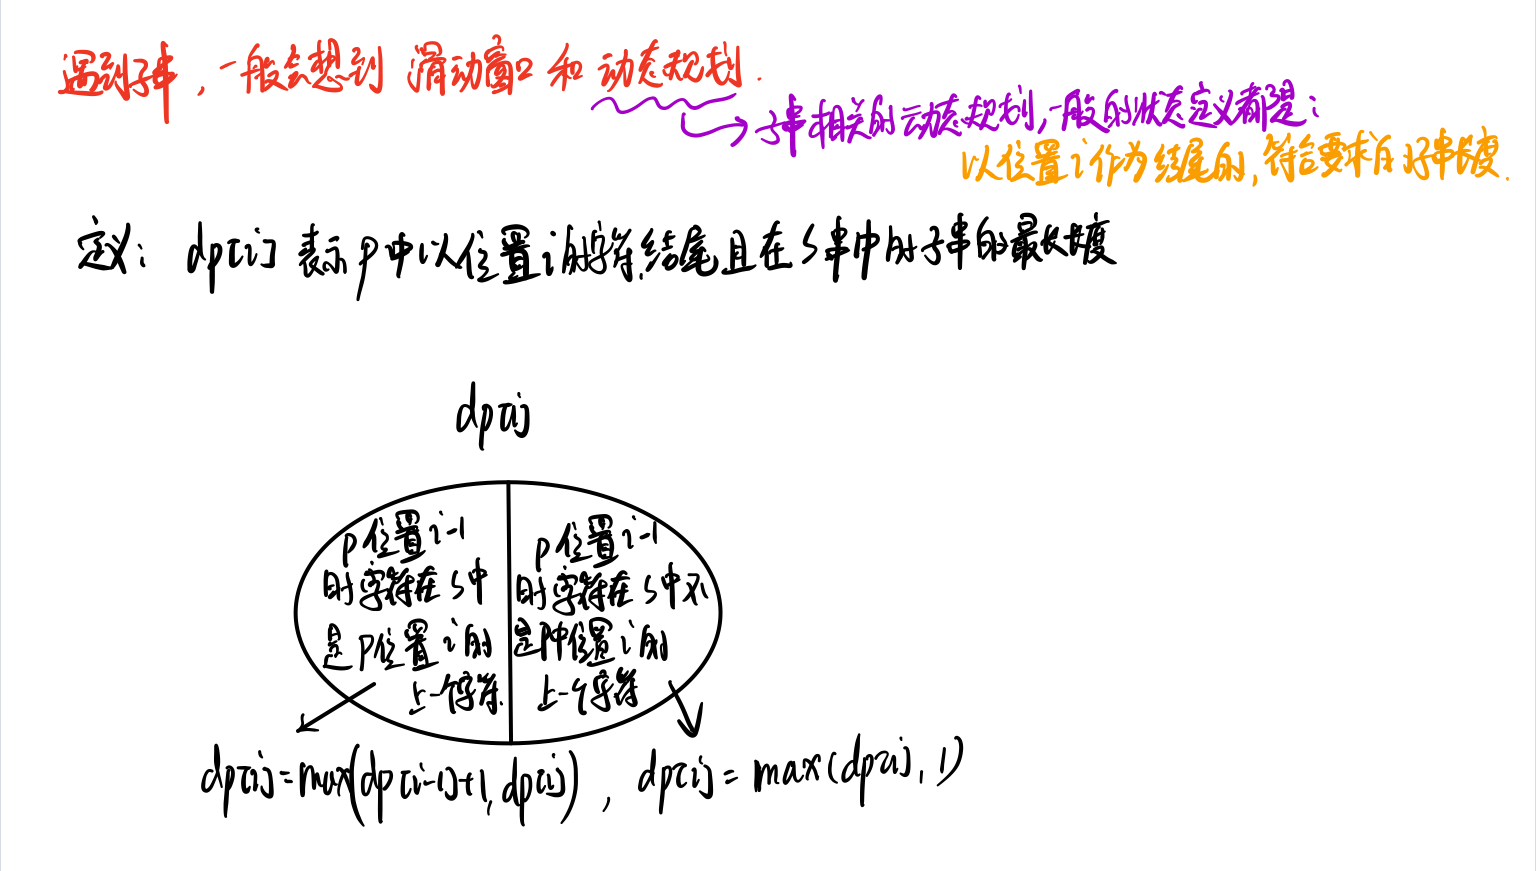 遇到子串，一般会想到 滑动窗口 和 动态规划．
子串相关的动态规划，一般的状态定义都是：
以位置i作为结尾的，符合要求的子串长度．
定义： dp[i] 表示p中以位置i的字符结尾且在s串中的子串的最长长度
dp[i]
p位置i-1
的字符在s中
是p位置i的
上一个字符．
p位置i-1
的字符在s中不
是p中位置i的
上一个字符
dp[i]=max(dp[i-1]+1, dp[i]) ， dp[i]=max(dp[i], 1)